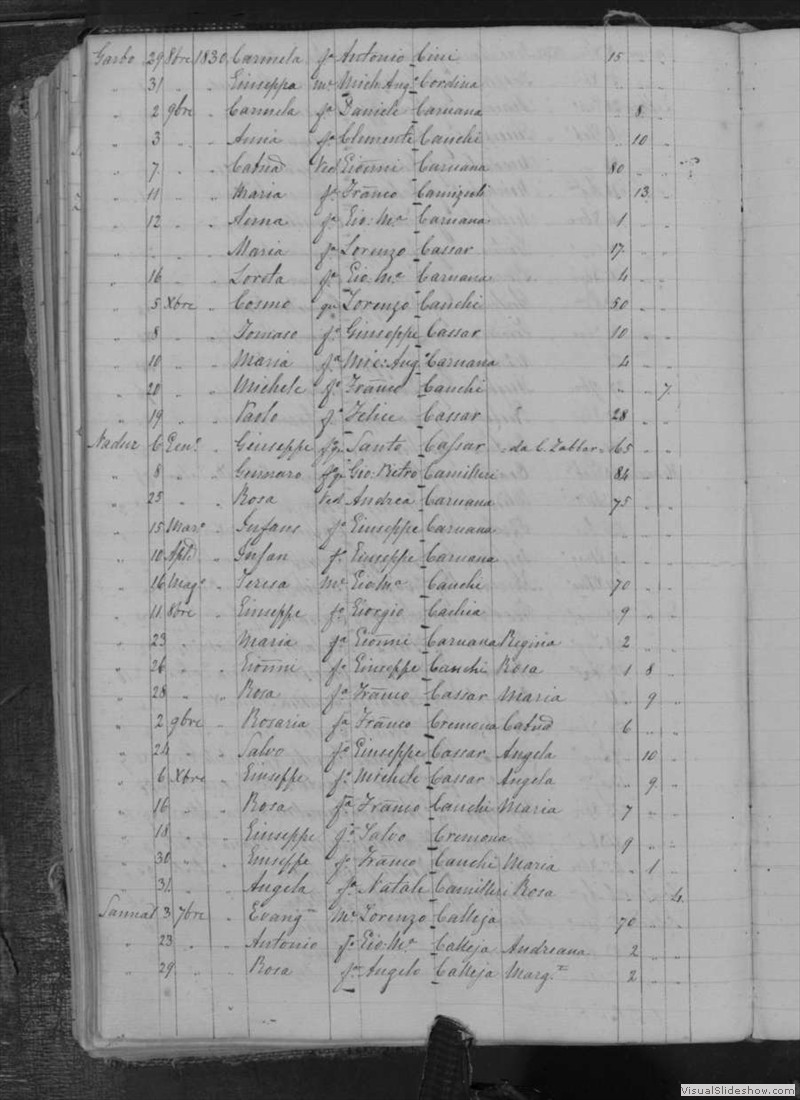 Garbo 29 8bre 1830 Carmela fa Antonio Cini 15 " "
" 31 " " Giuseppa Me Mich: Ange Cordina " " "
" 2 9bre " Carmela fa Daniele Caruana " 8 "
" 3 " " Anna fa Clemente Cauchi " 10 "
" 7 " " Catnd Ved Gionni Caruana 80 " "
" 11 " " Maria fa Franco 13 "
" 12 " " Anna fa Gio: Ma Caruana 1 " "
" " " " Maria fa Lorenzo Cassar 17 " "
" 16 " " Loreta fa Gio: Ma Caruana 4 " "
" 5 Xbre " Cosmo qm Lorenzo Cauchi 50 " "
" 8 " " Tomaso fo Giuseppe Cassar 10 " "
" 10 " " Maria fa Mic: Ange Caruana 4 " "
" 20 " " Michele fo Franco Cauchi " " 7
" 19 " " Paolo fo Felice Cassar 28 " "
Nadur 6 Genro " Giuseppe Santo Cassar = da C. Zabbar = 65 " "
" 8 " " Gennaro Gio: Pietro Camilleri 84 " "
" 25 " " Rosa Ved Andrea Caruana 75 " "
" 15 Maro " Infans fo Giuseppe Caruana " " "
" 10 " Infan fo Giuseppe Caruana " " "
" 16 Mago " Teresa Me Gio Ma Cauchi 70 " "
" 11 8bre " Giuseppe fo Giorgio Cachia 9 " "
" 23 " " Maria fa Gionni Caruana Regina 2 " "
" 26 " " Gionni fo Giuseppe Cauchi Rosa 1 8 "
" 28 " " Rosa fa Franco Cassar Maria " 9 "
" 2 9bre " Rosaria fa Franco Cremona Catnd 6 " "
" 24 " " Salvo fo Giuseppe Cassar Angela " 10 "
" 6 Xbre " Giuseppe fo Michele Cassar Angela " 9 "
" 16 " " Rosa fa Franco Cauchi Maria 7 " "
" 18 " " Giuseppe fo Salvo Cremona 9 " "
" 30 " " Giuseppe fo Franco Cauchi Maria " 1 "
" 31 " " Angela fa Natale Camilleri Rosa " " 4
Sannat 3 7bre " Evang Me Lorenzo Calleja 70 " "
" 23 " " Antonio fo Gio: Ma Calleja Andreana 2 " "
" 29 " " Rosa fa Angelo Calleja Marg 2 " "
VisualSlideshow.com